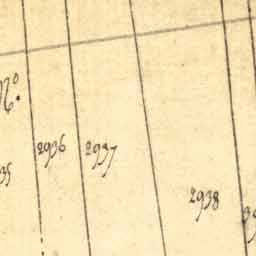 N.º
2936
2937
35
2938